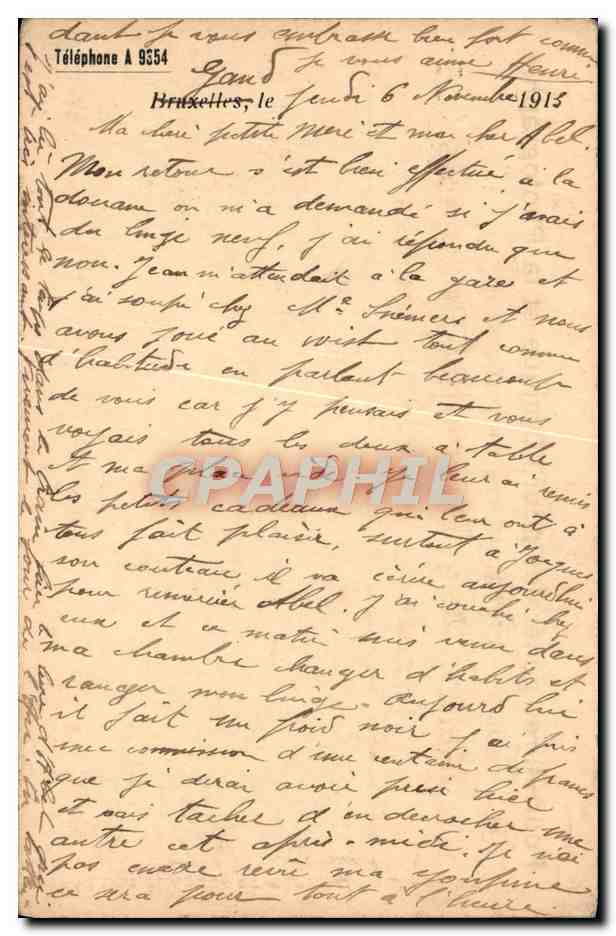 dant je vous embrasse bien fort comme
je vous aime Henri
Téléphone A 9354
Gand
Bruxelles, le Jeudi 6 Novembre 1913
Ma chere petite Mere et mon cher Abel.
Mon retour s'est bien effectué à la
douane on m'a demandé si j'avais
du linge neuf, j'ai répondu que
non. Jean m'attendait à la gare et
j'ai soupé chez Me et nous
avons joué au wist tout comme
d'habitude en parlant beaucoup
de vous car j'y pensais et vous
voyais tous les deux à table
et ma place vide je leur ai remis
les petits cadeaux qui leur ont à
tous fait plaisir, surtout à Jacques
son couteau, il va écrire aujourd'hui
pour remercier Abel. J'ai couché chez
eux et ce matin suis venu dans
ma chambre changer d'habits et
ranger mon linge. aujourd'hui
il fait un froid noir j'ai pris
une commission d'une centaine de francs
que je devrai avoir pris hier
et vais tacher d'en decrocher une
autre cet après-midi. Je n'ai
pas encore revu ma
ce sera pour tout à l'heure.
J'ai lu tout
CPAPHIL